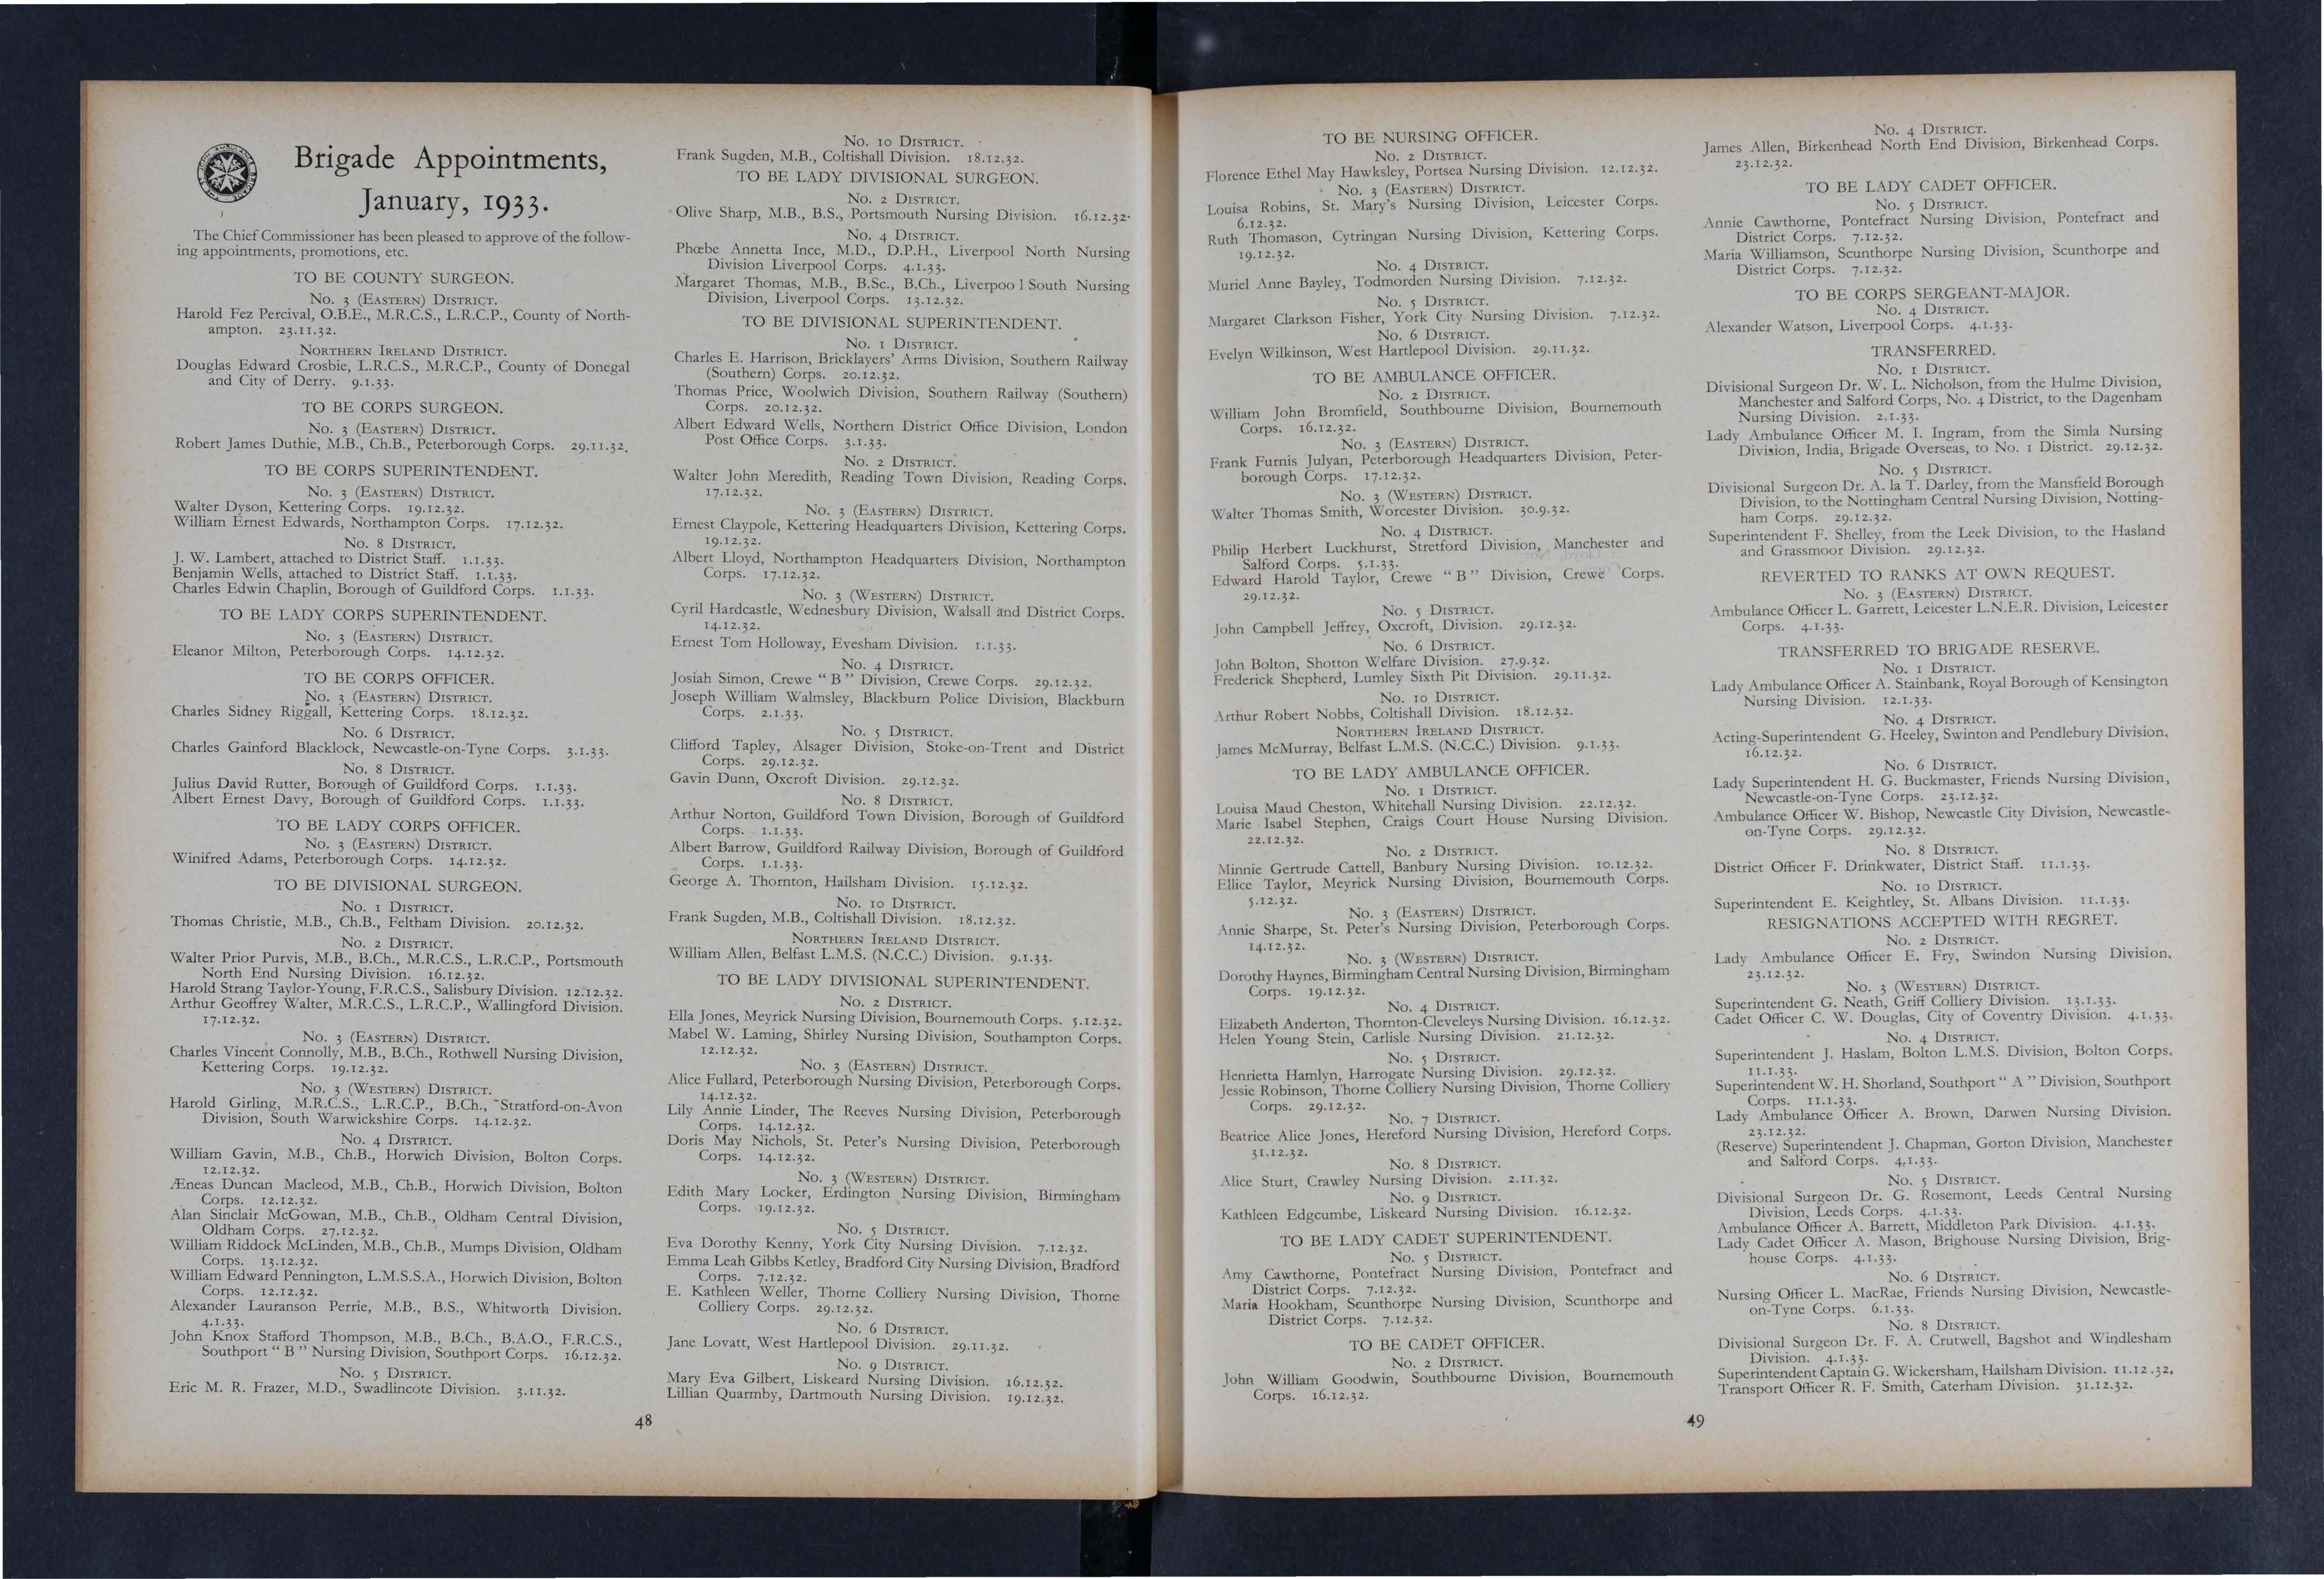 Brigade Appointments,
January, 1933.
The Chief Commissioner has been pleased to approve of the follow-
ing appointments, promotions, etc.
TO BE COUNTY SURGEON.
No. 3 (Eastern) District.
Harold Fez Percival, O.B.E., M.R.C.S., L.R.C.P., County of North-
ampton. 23.11.32.
Northern Ireland District.
Douglas Edward Crosbie, L.R.C.S., M.R.C.P., County of Donegal
and City of Derry. 9.1.33.
TO BE CORPS SURGEON.
No. 3 (Eastern) District.
Robert James Duthie, M.B., Ch.B., Peterborough Corps. 29.11.32.
TO BE CORPS SUPERINTENDENT.
No. 3 (Eastern) District.
Walter Dyson, Kettering Corps. 19.12.32.
William Ernest Edwards, Northampton Corps. 17.12.32.
No. 8 District.
J. W. Lambert, attached to District Staff. 1.1.33.
Benjamin Wells, attached to District Staff. 1.1.33.
Charles Edwin Chaplin, Borough of Guildford Corps. 1.1.33.
TO BE LADY CORPS SUPERINTENDENT.
No. 3 (Eastern) District.
Eleanor Milton, Peterborough Corps. 14.12.32.
TO BE CORPS OFFICER.
No. 3 (Eastern) District.
Charles Sidney Riggall, Kettering Corps. 18.12.32.
No. 6 District.
Charles Gainford Blacklock, Newcastle-on-Tyne Corps. 3.1.33.
No. 8 District.
Julius David Rutter, Borough of Guildford Corps. 1.1.33.
Albert Ernest Davy, Borough of Guildford Corps. 1.1.33.
TO BE LADY CORPS OFFICER.
No. 3 (Eastern) District.
Winifred Adams, Peterborough Corps. 14.12.32.
TO BE DIVISIONAL SURGEON.
No. 1 District.
Thomas Christie, M.B., Ch.B., Feltham Division. 20.12.32.
No. 2 District.
Walter Prior Purvis, M.B., B.Ch., M.R.C.S., L.R.C.P., Portsmouth
North End Nursing Division. 16.12.32.
Harold Strang Taylor-Young, F.R.C.S., Salisbury Division. 12.12.32.
Arthur Geoffrey Walter, M.R.C.S., L.R.C.P., Wallingford Division.
17.12.32.
No. 3 (Eastern) District.
Charles Vincent Connolly, M.B., B.Ch., Rothwell Nursing Division,
Kettering Corps. 19.12.32.
No. 3 (Western) District.
Harold Girling, M.R.C.S., L.R.C.P., B.Ch., Stratford-on-Avon
Division, South Warwickshire Corps. 14.12.32.
No. 4 District.
William Gavin, M.B., Ch.B., Horwich Division, Bolton Corps.
12.12.32.
Æneas Duncan Macleod, M.B., Ch.B., Horwich Division, Bolton
Corps. 12.12.32.
Alan Sinclair McGowan, M.B., Ch.B., Oldham Central Division,
Oldham Corps. 27.12.32.
William Riddock McLinden, M.B., Ch.B., Mumps Division, Oldham
Corps. 13.12.32.
William Edward Pennington, L.M.S.S.A., Horwich Division, Bolton
Corps. 12.12.32.
Alexander Lauranson Perrie, M.B., B.S., Whitworth Division.
4.1.33.
John Knox Stafford Thompson, M.B., B.Ch., B.A.O., F.R.C.S.,
Southport " B " Nursing Division, Southport Corps. 16.12.32.
No. 5 District.
Eric M. R. Frazer, M.D., Swadlincote Division. 3.11.32.
No. 10 District.
Frank Sugden, M.B., Coltishall Division. 18.12.32.
TO BE LADY DIVISIONAL SURGEON.
No. 2 District.
Olive Sharp, M.B., B.S., Portsmouth Nursing Division. 16.12.32.
No. 4 District.
Phœbe Annetta Ince, M.D., D.P.H., Liverpool North Nursing
Division Liverpool Corps. 4.1.33.
Margaret Thomas, M.B., B.Sc., B.Ch., Liverpoo l South Nursing
Division, Liverpool Corps. 13.12.32.
TO BE DIVISIONAL SUPERINTENDENT.
No. 1 District.
Charles E. Harrison, Bricklayers' Arms Division, Southern Railway
(Southern) Corps. 20.12.32.
Thomas Price, Woolwich Division, Southern Railway (Southern)
Corps. 20.12.32.
Albert Edward Wells, Northern District Office Division, London
Post Office Corps. 3.1.33.
No. 2 District.
Walter John Meredith, Reading Town Division, Reading Corps.
17.12.32.
No. 3 (Eastern) District.
Ernest Claypole, Kettering Headquarters Division, Kettering Corps.
19.12.32.
Albert Lloyd, Northampton Headquarters Division, Northampton
Corps. 17.12.32.
No. 3 (Western) District.
Cyril Hardcastle, Wednesbury Division, Walsall and District Corps.
14.12.32.
Ernest Tom Holloway, Evesham Division. 1.1.33.
No. 4 District.
Josiah Simon, Crewe " B " Division, Crewe Corps. 29.12.32.
Joseph William Walmsley, Blackburn Police Division, Blackburn
Corps. 2.1.33.
No. 5 District.
Clifford Tapley, Alsager Division, Stoke-on-Trent and District
Corps. 29.12.32.
Gavin Dunn, Oxcroft Division. 29.12.32.
No. 8 District.
Arthur Norton, Guildford Town Division, Borough of Guildford
Corps. 1.1.33.
Albert Barrow, Guildford Railway Division, Borough of Guildford
Corps. 1.1.33.
George A. Thornton, Hailsham Division. 15.12.32.
No. 10 District.
Frank Sugden, M.B., Coltishall Division. 18.12.32.
Northern Ireland District.
William Allen, Belfast L.M.S. (N.C.C.) Division. 9.1.33.
TO BE LADY DIVISIONAL SUPERINTENDENT.
No. 2 District.
Ella Jones, Meyrick Nursing Division, Bournemouth Corps. 5.12.32.
Mabel W. Laming, Shirley Nursing Division, Southampton Corps.
12.12.32.
No. 3 (Eastern) District.
Alice Fullard, Peterborough Nursing Division, Peterborough Corps.
14.12.32.
Lily Annie Linder, The Reeves Nursing Division, Peterborough
Corps. 14.12.32.
Doris May Nichols, St. Peter's Nursing Division, Peterborough
Corps. 14.12.32.
No. 3 (Western) District.
Edith Mary Locker, Erdington Nursing Division, Birmingham
Corps. 19.12.32.
No. 5 District.
Eva Dorothy Kenny, York City Nursing Division. 7.12.32.
Emma Leah Gibbs Ketley, Bradford City Nursing Division, Bradford
Corps. 7.12.32.
E. Kathleen Weller, Thorne Colliery Nursing Division, Thorne
Colliery Corps. 29.12.32.
No. 6 District.
Jane Lovatt, West Hartlepool Division. 29.11.32.
No. 9 District.
Mary Eva Gilbert, Liskeard Nursing Division. 16.12.32.
Lillian Quarmby, Dartmouth Nursing Division. 19.12.32.
48
TO BE NURSING OFFICER.
No. 2 District.
Florence Ethel May Hawksley, Portsea Nursing Division. 12.12.32.
No. 3 (Eastern) District.
Louisa Robins, St. Mary's Nursing Division, Leicester Corps.
6.12.32.
Ruth Thomason, Cytringan Nursing Division, Kettering Corps.
19.12.32.
No. 4 District.
Muriel Anne Bayley, Todmorden Nursing Division. 7.12.32.
No. 5 District.
Margaret Clarkson Fisher, York City Nursing Division. 7.12.32.
No. 6 District.
Evelyn Wilkinson, West Hartlepool Division. 29.11.32.
TO BE AMBULANCE OFFICER.
No. 2 District.
William John Bromfield, Southbourne Division, Bournemouth
Corps. 16.12.32.
No. 3 (Eastern) District.
Frank Furnis Julyan, Peterborough Headquarters Division, Peter-
borough Corps. 17.12.32.
No. 3 (Western) District.
Walter Thomas Smith, Worcester Division. 30.9.32.
No. 4 District.
Philip Herbert Luckhurst, Stretford Division, Manchester and
Salford Corps. 5.1.33.
Edward Harold Taylor, Crewe " B " Division, Crewe Corps.
29.12.32.
No. 5 District.
John Campbell Jeffrey, Oxcroft, Division. 29.12.32.
No. 6 District.
John Bolton, Shotton Welfare Division. 27.9.32.
Frederick Shepherd, Lumley Sixth Pit Division. 29.11.32.
No. 10 District.
Arthur Robert Nobbs, Coltishall Division. 18.12.32.
Northern Ireland District.
James McMurray, Belfast L.M.S. (N.C.C.) Division. 9.1.33.
TO BE LADY AMBULANCE OFFICER.
No. 1 District.
Louisa Maud Cheston, Whitehall Nursing Division. 22.12.32.
Marie Isabel Stephen, Craigs Court House Nursing Division.
22.12.32.
No. 2 District.
Minnie Gertrude Cattell, Banbury Nursing Division. 10.12.32.
Ellice Taylor, Meyrick Nursing Division, Bournemouth Corps.
5.12.32.
No. 3 (Eastern) District.
Annie Sharpe, St. Peter's Nursing Division, Peterborough Corps.
14.12.32.
No. 3 (Western) District.
Dorothy Haynes, Birmingham Central Nursing Division, Birmingham
Corps. 19.12.32.
No. 4 District.
Elizabeth Anderton, Thornton-Cleveleys Nursing Division. 16.12.32.
Helen Young Stein, Carlisle Nursing Division. 21.12.32.
No. 5 District.
Henrietta Hamlyn, Harrogate Nursing Division. 29.12.32.
Jessie Robinson, Thorne Colliery Nursing Division, Thorne Colliery
Corps. 29.12.32.
No. 7 District.
Beatrice Alice Jones, Hereford Nursing Division, Hereford Corps.
31.12.32.
No. 8 District.
Alice Sturt, Crawley Nursing Division. 2.11.32.
No. 9 District.
Kathleen Edgcumbe, Liskeard Nursing Division. 16.12.32.
TO BE LADY CADET SUPERINTENDENT.
No. 5 District.
Amy Cawthorne, Pontefract Nursing Division, Pontefract and
District Corps. 7.12.32.
Maria Hookham, Scunthorpe Nursing Division, Scunthorpe and
District Corps. 7.12.32.
TO BE CADET OFFICER.
No. 2 District.
John William Goodwin, Southbourne Division, Bournemouth
Corps. 16.12.32.
No. 4 District.
James Allen, Birkenhead North End Division, Birkenhead Corps.
23.12.32.
TO BE LADY CADET OFFICER.
No. 5 District.
Annie Cawthorne, Pontefract Nursing Division, Pontefract and
District Corps. 7.12.32.
Maria Williamson, Scunthorpe Nursing Division, Scunthorpe and
District Corps. 7.12.32.
TO BE CORPS SERGEANT-MAJOR.
No. 4 District.
Alexander Watson, Liverpool Corps. 4.1.33.
TRANSFERRED.
No. 1 District.
Divisional Surgeon Dr. W. L. Nicholson, from the Hulme Division,
Manchester and Salford Corps, No. 4 District, to the Dagenham
Nursing Division. 2.1.33.
Lady Ambulance Officer M. I. Ingram, from the Simla Nursing
Division, India, Brigade Overseas, to No. 1 District. 29.12.32.
No. 5 District.
Divisional Surgeon Dr. A. la T. Darley, from the Mansfield Borough
Division, to the Nottingham Central Nursing Division, Notting-
ham Corps. 29.12.32.
Superintendent F. Shelley, from the Leek Division, to the Hasland
and Grassmoor Division. 29.12.32.
REVERTED TO RANKS AT OWN REQUEST.
No. 3 (Eastern) District.
Ambulance Officer L. Garrett, Leicester L.N.E.R. Division, Leicester
Corps. 4.1.33.
TRANSFERRED TO BRIGADE RESERVE.
No. 1 District.
Lady Ambulance Officer A. Stainbank, Royal Borough of Kensington
Nursing Division. 12.1.33.
No. 4 District.
Acting-Superintendent G. Heeley, Swinton and Pendlebury Division.
16.12.32.
No. 6 District.
Lady Superintendent H. G. Buckmaster, Friends Nursing Division,
Newcastle-on-Tyne Corps. 23.12.32.
Ambulance Officer W. Bishop, Newcastle City Division, Newcastle-
on-Tyne Corps. 29.12.32.
No. 8 District.
District Officer F. Drinkwater, District Staff. 11.1.33.
No. 10 District.
Superintendent E. Keightley, St. Albans Division. 11.1.33.
RESIGNATIONS ACCEPTED WITH REGRET.
No. 2 District.
Lady Ambulance Officer E. Fry, Swindon Nursing Division.
23.12.32.
No. 3 (Western) District.
Superintendent G. Neath, Griff Colliery Division. 13.1.33.
Cadet Officer C. W. Douglas, City of Coventry Division. 4.1.33.
No. 4 District.
Superintendent J. Haslam, Bolton L.M.S. Division, Bolton Corps.
11.1.33.
Superintendent W. H. Shorland, Southport " A " Division, Southport
Corps. 11.1.33.
Lady Ambulance Officer A. Brown, Darwen Nursing Division.
23.12.32.
(Reserve) Superintendent J. Chapman, Gorton Division, Manchester
and Salford Corps. 4.1.33.
No. 5 District.
Divisional Surgeon Dr. G. Rosemont, Leeds Central Nursing
Division, Leeds Corps. 4.1.33.
Ambulance Officer A. Barrett, Middleton Park Division. 4.1.33.
Lady Cadet Officer A. Mason, Brighouse Nursing Division, Brig-
house Corps. 4.1.33.
No. 6 District.
Nursing Officer L. MacRae, Friends Nursing Division, Newcastle-
on-Tyne Corps. 6.1.33.
No. 8 District.
Divisional Surgeon Dr. F. A. Crutwell, Bagshot and Windlesham
Division. 4.1.33.
Superintendent Captain G. Wickersham, Hailsham Division. 11.12.32.
Transport Officer R. F. Smith, Caterham Division. 31.12.32.
49